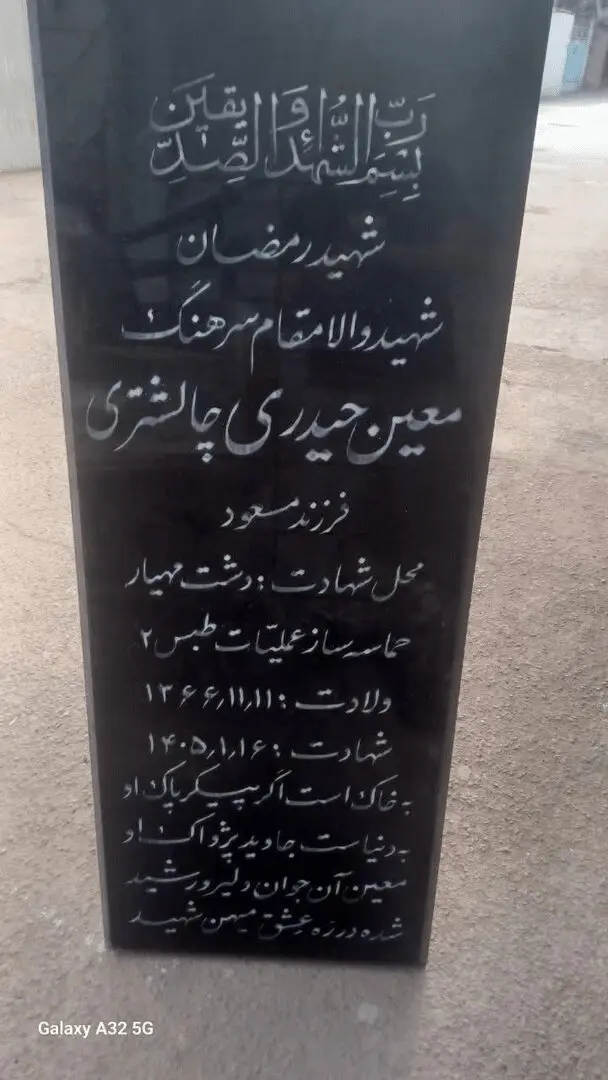 بِسْمِ رَبِّ الشُّهَدٰاءِ وَالصِّدّٖیقٖینَ
شهید رمضان
شهید والامقام سرهنگ
معین حیدری چالشتری
فرزند مسعود
محل شهادت : دشت مهیار
حماسه ساز عملیّات طبس ۲
ولادت : ۱۳۶۶/۱۱/۱۱
شهادت : ۱۴۰۵/۱/۱۶
به خاک است اگر پیکر پاک او
به دنیاست جاوید پژواک او
معین آن جوان دلیر و رشید
شده در ره عشق میهن شهید
Galaxy A32 5G